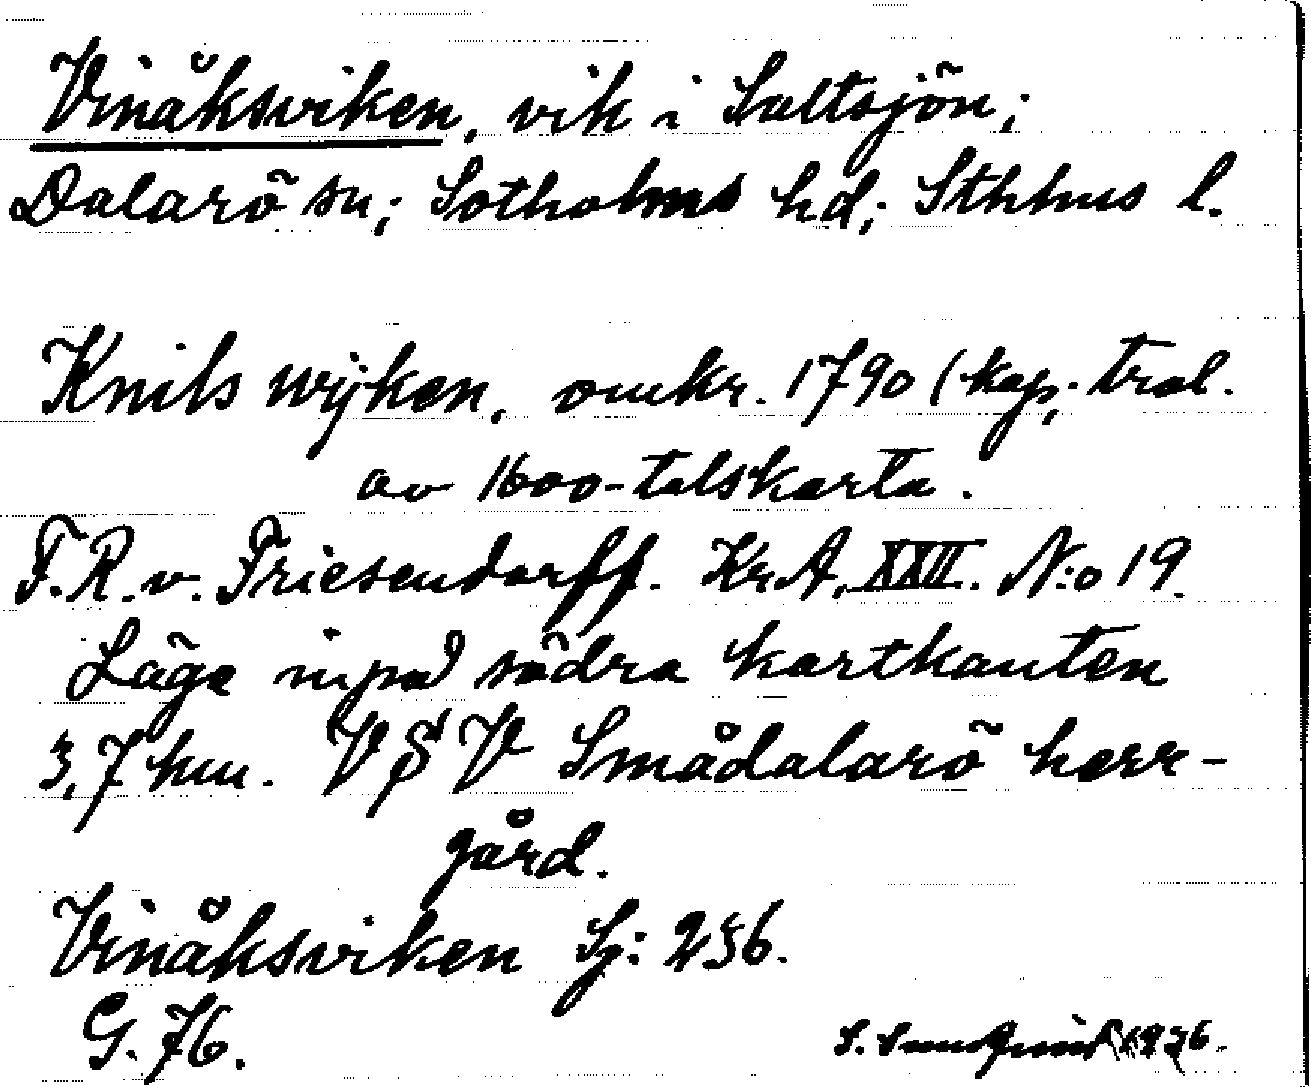 Vinåksviken, vik i Saltsjön;
Dalarö sn; Sotholms hd; Sthlms l.
Knils wijken, omkr. 1790 (kop. trol.
av 1600-talskarta.
F.R.v. Friesendorff. Kr.A. XXII. N:o 19.
Läge invid södra kartkanten
3,7 km. VSV Smådalarö herr-
gård.
Vinåksviken Sj: 236.
G. 76.
S. 1936.